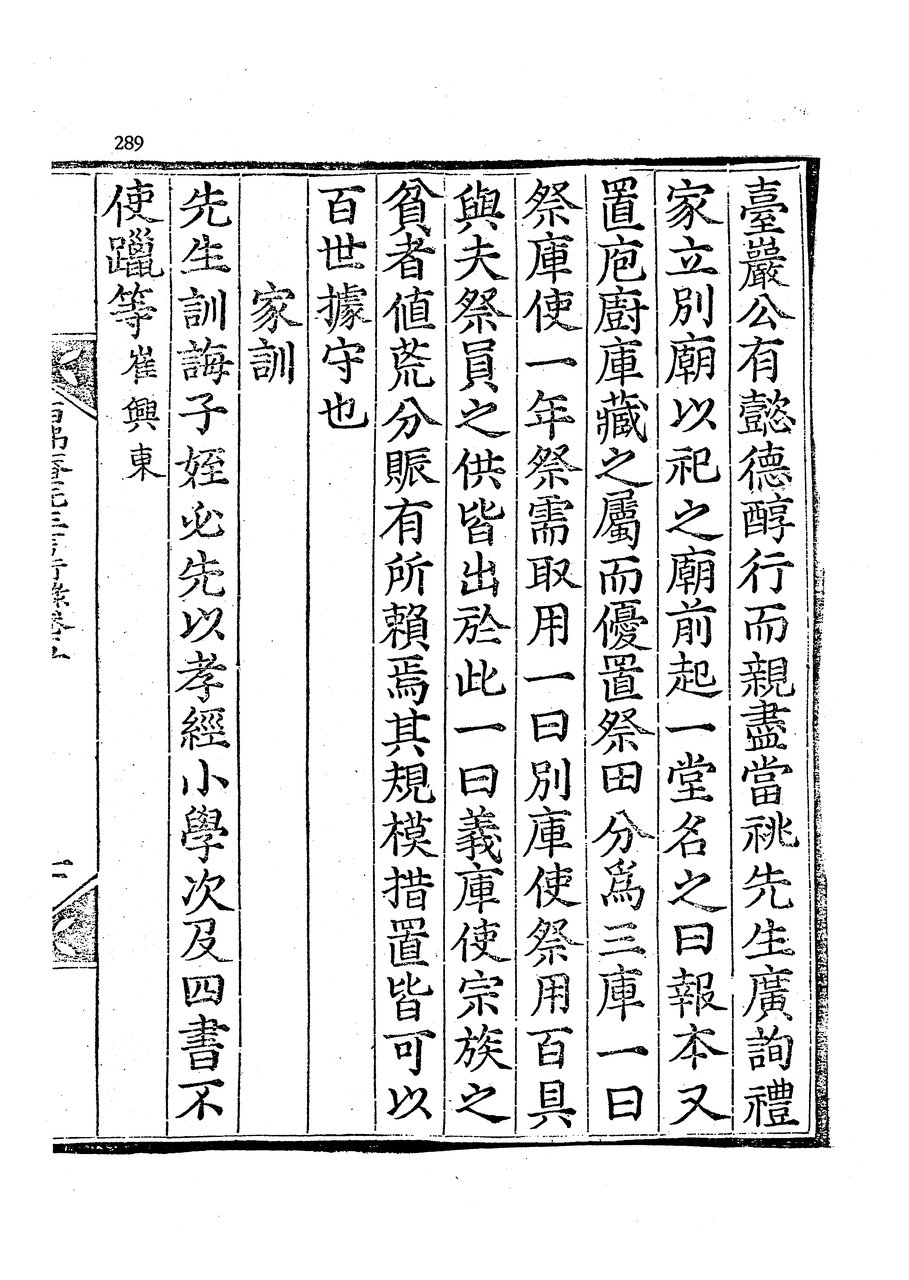 289
臺巖公有懿德醇行而親盡當祧先生廣詢禮
家立別廟以祀之廟前起一堂名之曰報本又
置庖廚庫藏之屬而優置祭田分爲三庫一曰
祭庫使一年祭需取用一曰別庫使祭用百具
與夫祭員之供皆出於此一曰義庫使宗族之
貧者値荒分賑有所賴焉其規模措置皆可以
百世據守也
家訓
先生訓誨子姪必先以孝經小學次及四書不
使躐等崔興東